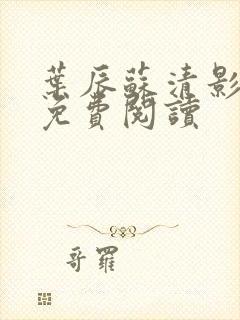 葉辰蘇清影
免費閱讀
哥羅